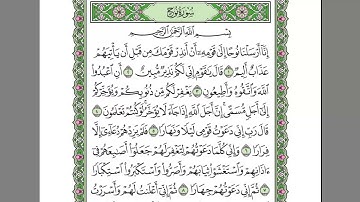 سُورَةُ نُوحٍ
بِسْمِ اللَّهِ الرَّحْمَٰنِ الرَّحِيمِ
إِنَّا أَرْسَلْنَا نُوحًا إِلَىٰ قَوْمِهِ أَنْ أَنذِرْ قَوْمَكَ مِن قَبْلِ أَن يَأْتِيَهُمْ
عَذَابٌ أَلِيمٌ ١ قَالَ يَٰقَوْمِ إِنِّي لَكُمْ نَذِيرٌ مُّبِينٌ ٢ أَنِ اعْبُدُوا
اللَّهَ وَاتَّقُوهُ وَأَطِيعُونِ ٣ يَغْفِرْ لَكُم مِّن ذُنُوبِكُمْ وَيُؤَخِّرْكُمْ
إِلَىٰ أَجَلٍ مُّسَمًّى إِنَّ أَجَلَ اللَّهِ إِذَا جَاءَ لَا يُؤَخَّرُ لَوْ كُنتُمْ تَعْلَمُونَ ٤
قَالَ رَبِّ إِنِّي دَعَوْتُ قَوْمِي لَيْلًا وَنَهَارًا ٥ فَلَمْ يَزِدْهُمْ دُعَائِي إِلَّا
فِرَارًا ٦ وَإِنِّي كُلَّمَا دَعَوْتُهُمْ لِتَغْفِرَ لَهُمْ جَعَلُوا أَصَٰبِعَهُمْ فِي
ءَاذَانِهِمْ وَاسْتَغْشَوْا ثِيَابَهُمْ وَأَصَرُّوا وَاسْتَكْبَرُوا اسْتِكْبَارًا
٧ ثُمَّ إِنِّي دَعَوْتُهُمْ جِهَارًا ٨ ثُمَّ إِنِّي أَعْلَنتُ لَهُمْ وَأَسْرَرْتُ